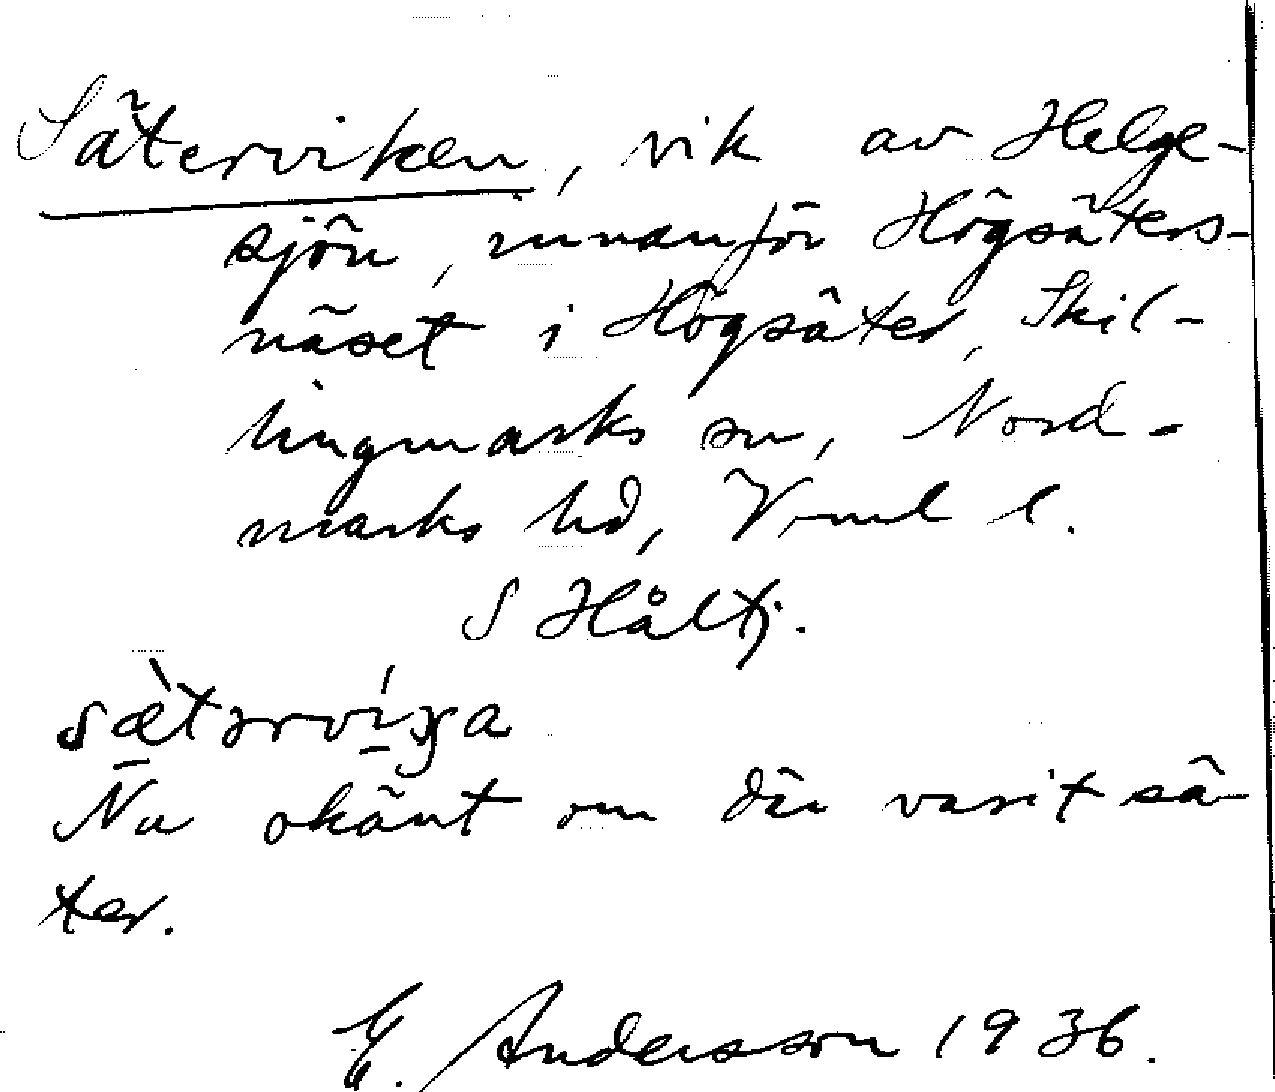 Säterviken, vik av Helge-
sjön, innanför Högsäters-
näset i Högsäter, Skil-
lingmarks sn, Nord-
marks hd, Vrml l.
S Håltj.
sæ̀tərvíga
Nu okänt om där varit sä-
ter.
E. Andersson 1936.